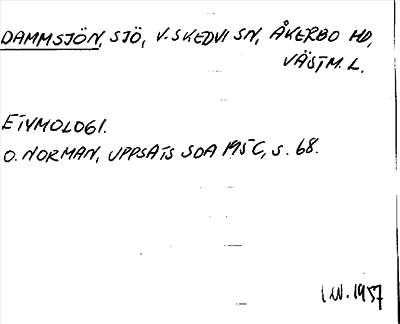 DAMMSJÖN, SJÖ, V. SKEDVI SN, ÅKERBO HD,
VÄSTM. L.
ETYMOLOGI.
O. NORMAN, UPPSATS SOA 195C, S. 68.
I.W. 1957